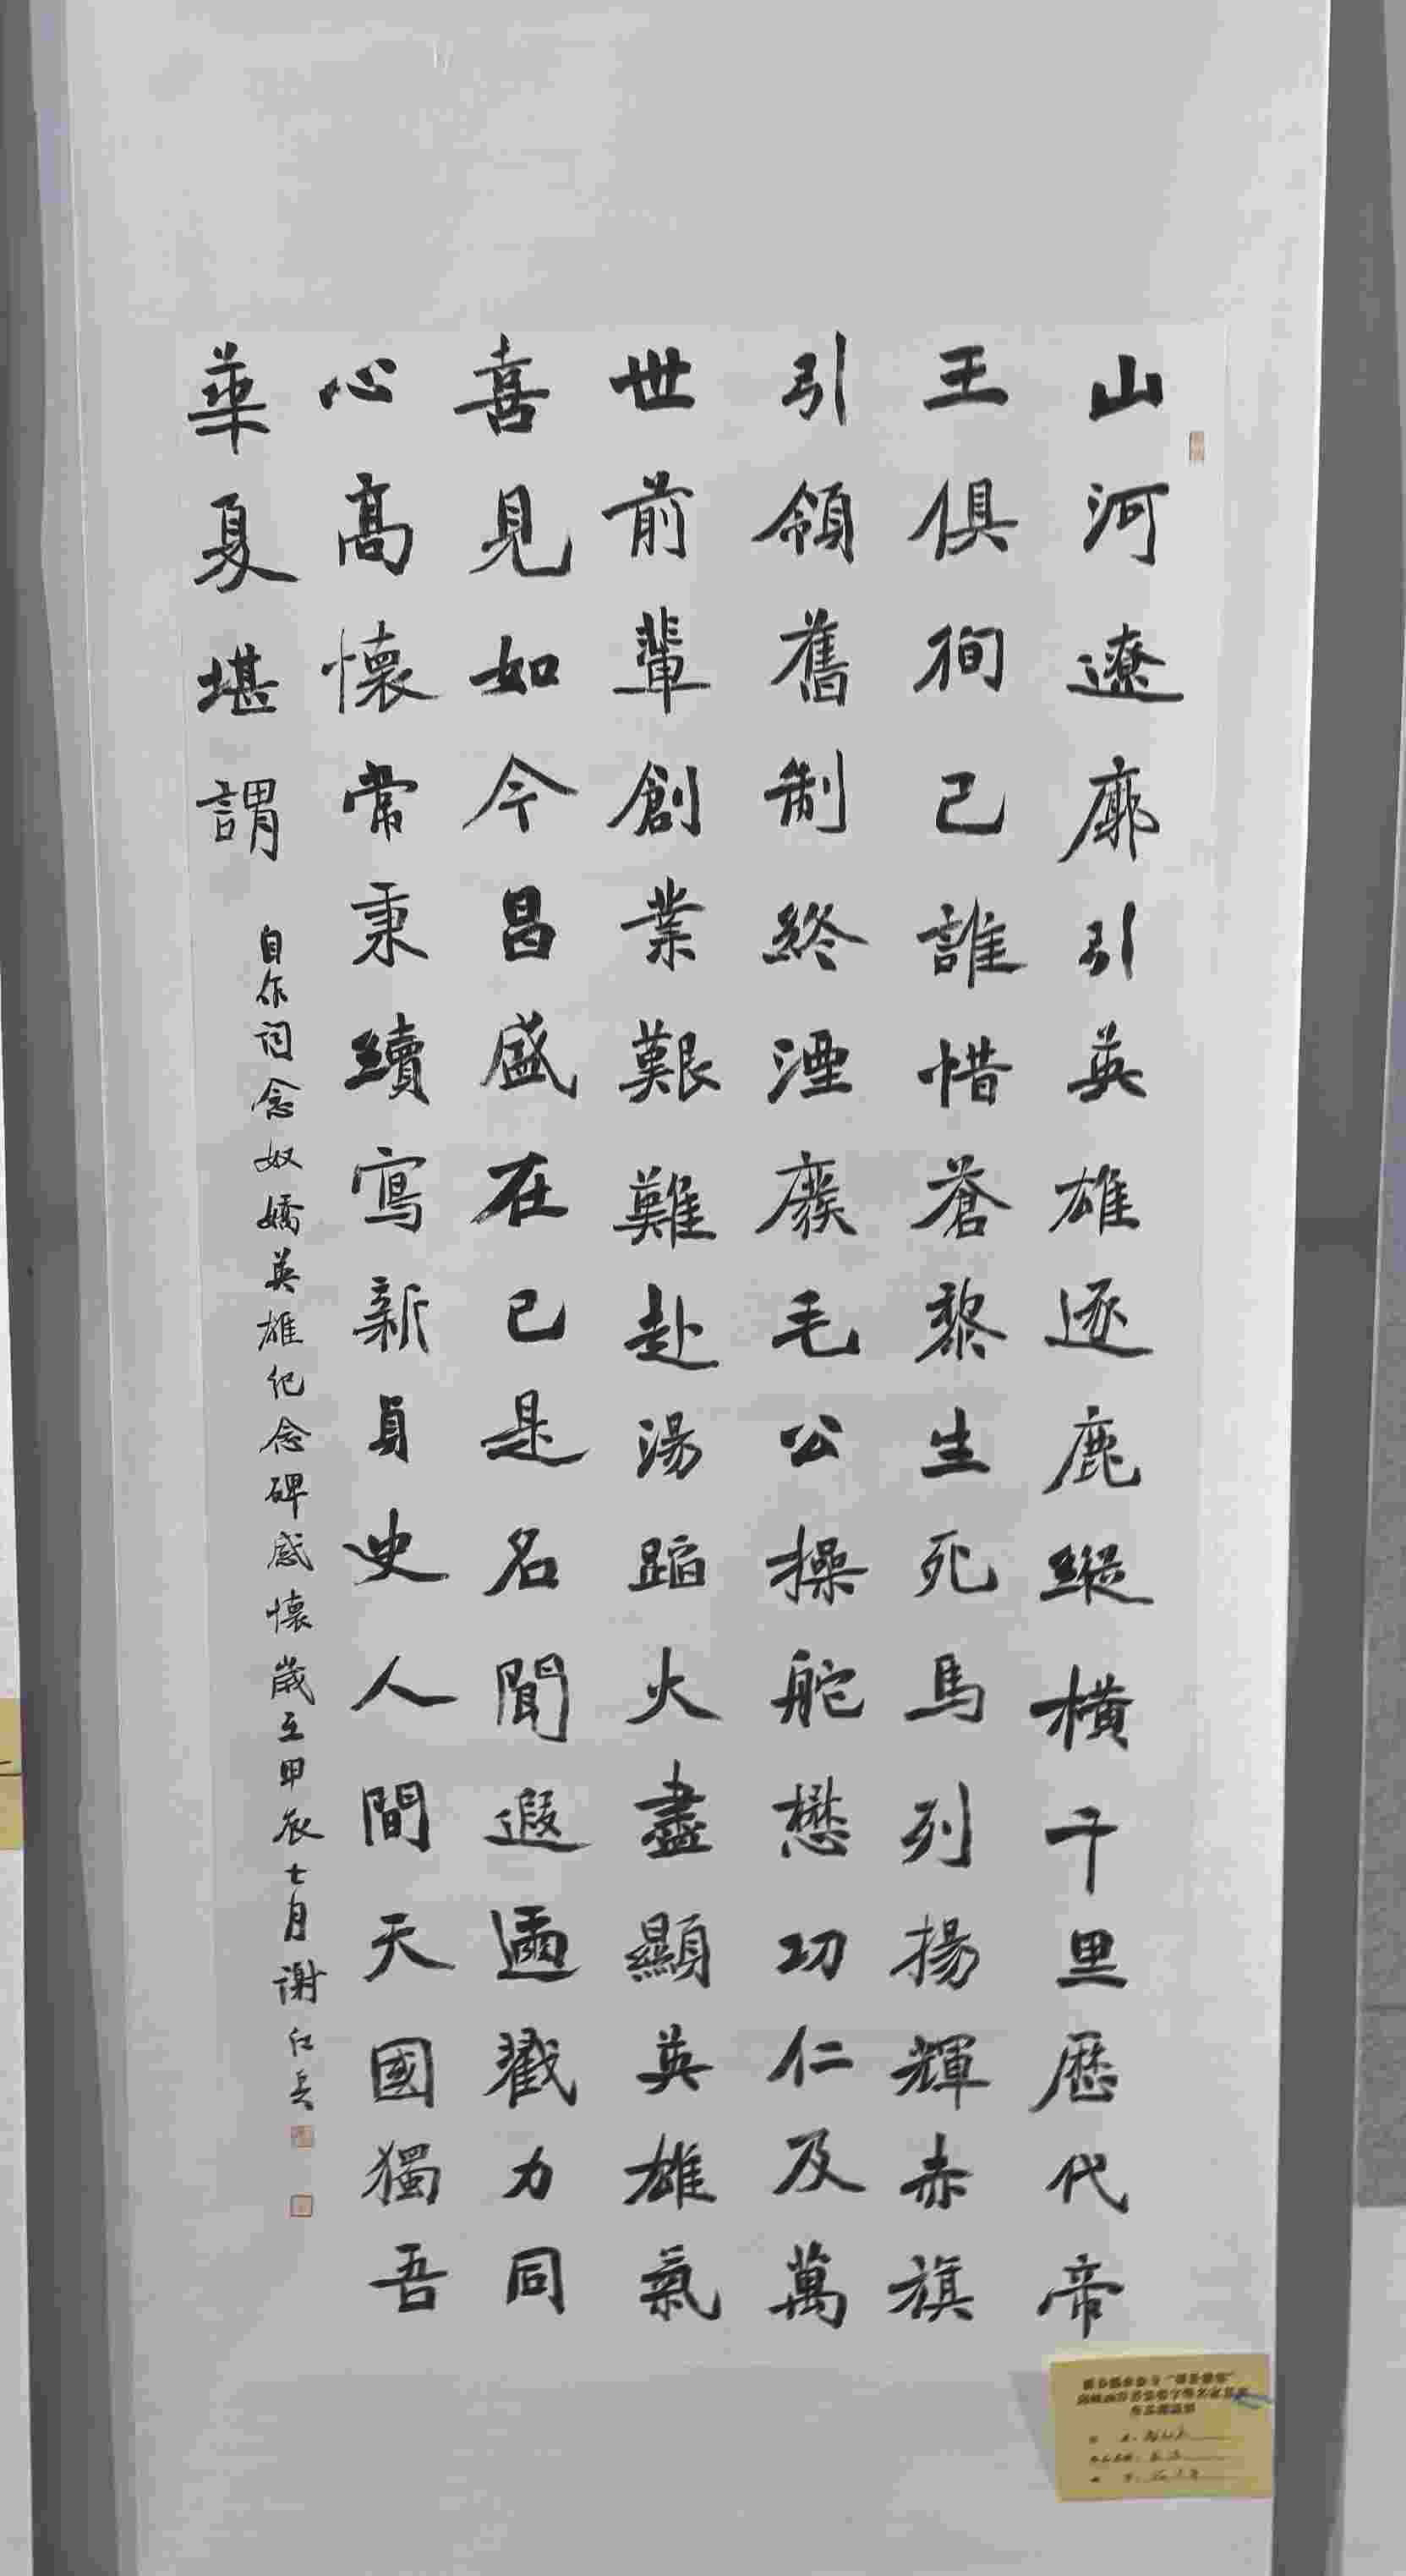 山河遼廓引英雄逐鹿縱橫千里歷代帝
王俱徇己誰惜蒼黎生死馬列揚輝赤旗
引領舊制終湮廢毛公操舵懋功仁及萬
世前輩創業艱難赴湯蹈火盡顯英雄氣
喜見如今昌盛在已是名聞遐邇戮力同
心高懷常秉續寫新員史人間天國獨吾
華夏堪謂
自作词念奴嬌英雄纪念碑感懷歲在甲辰七月謝仁兵